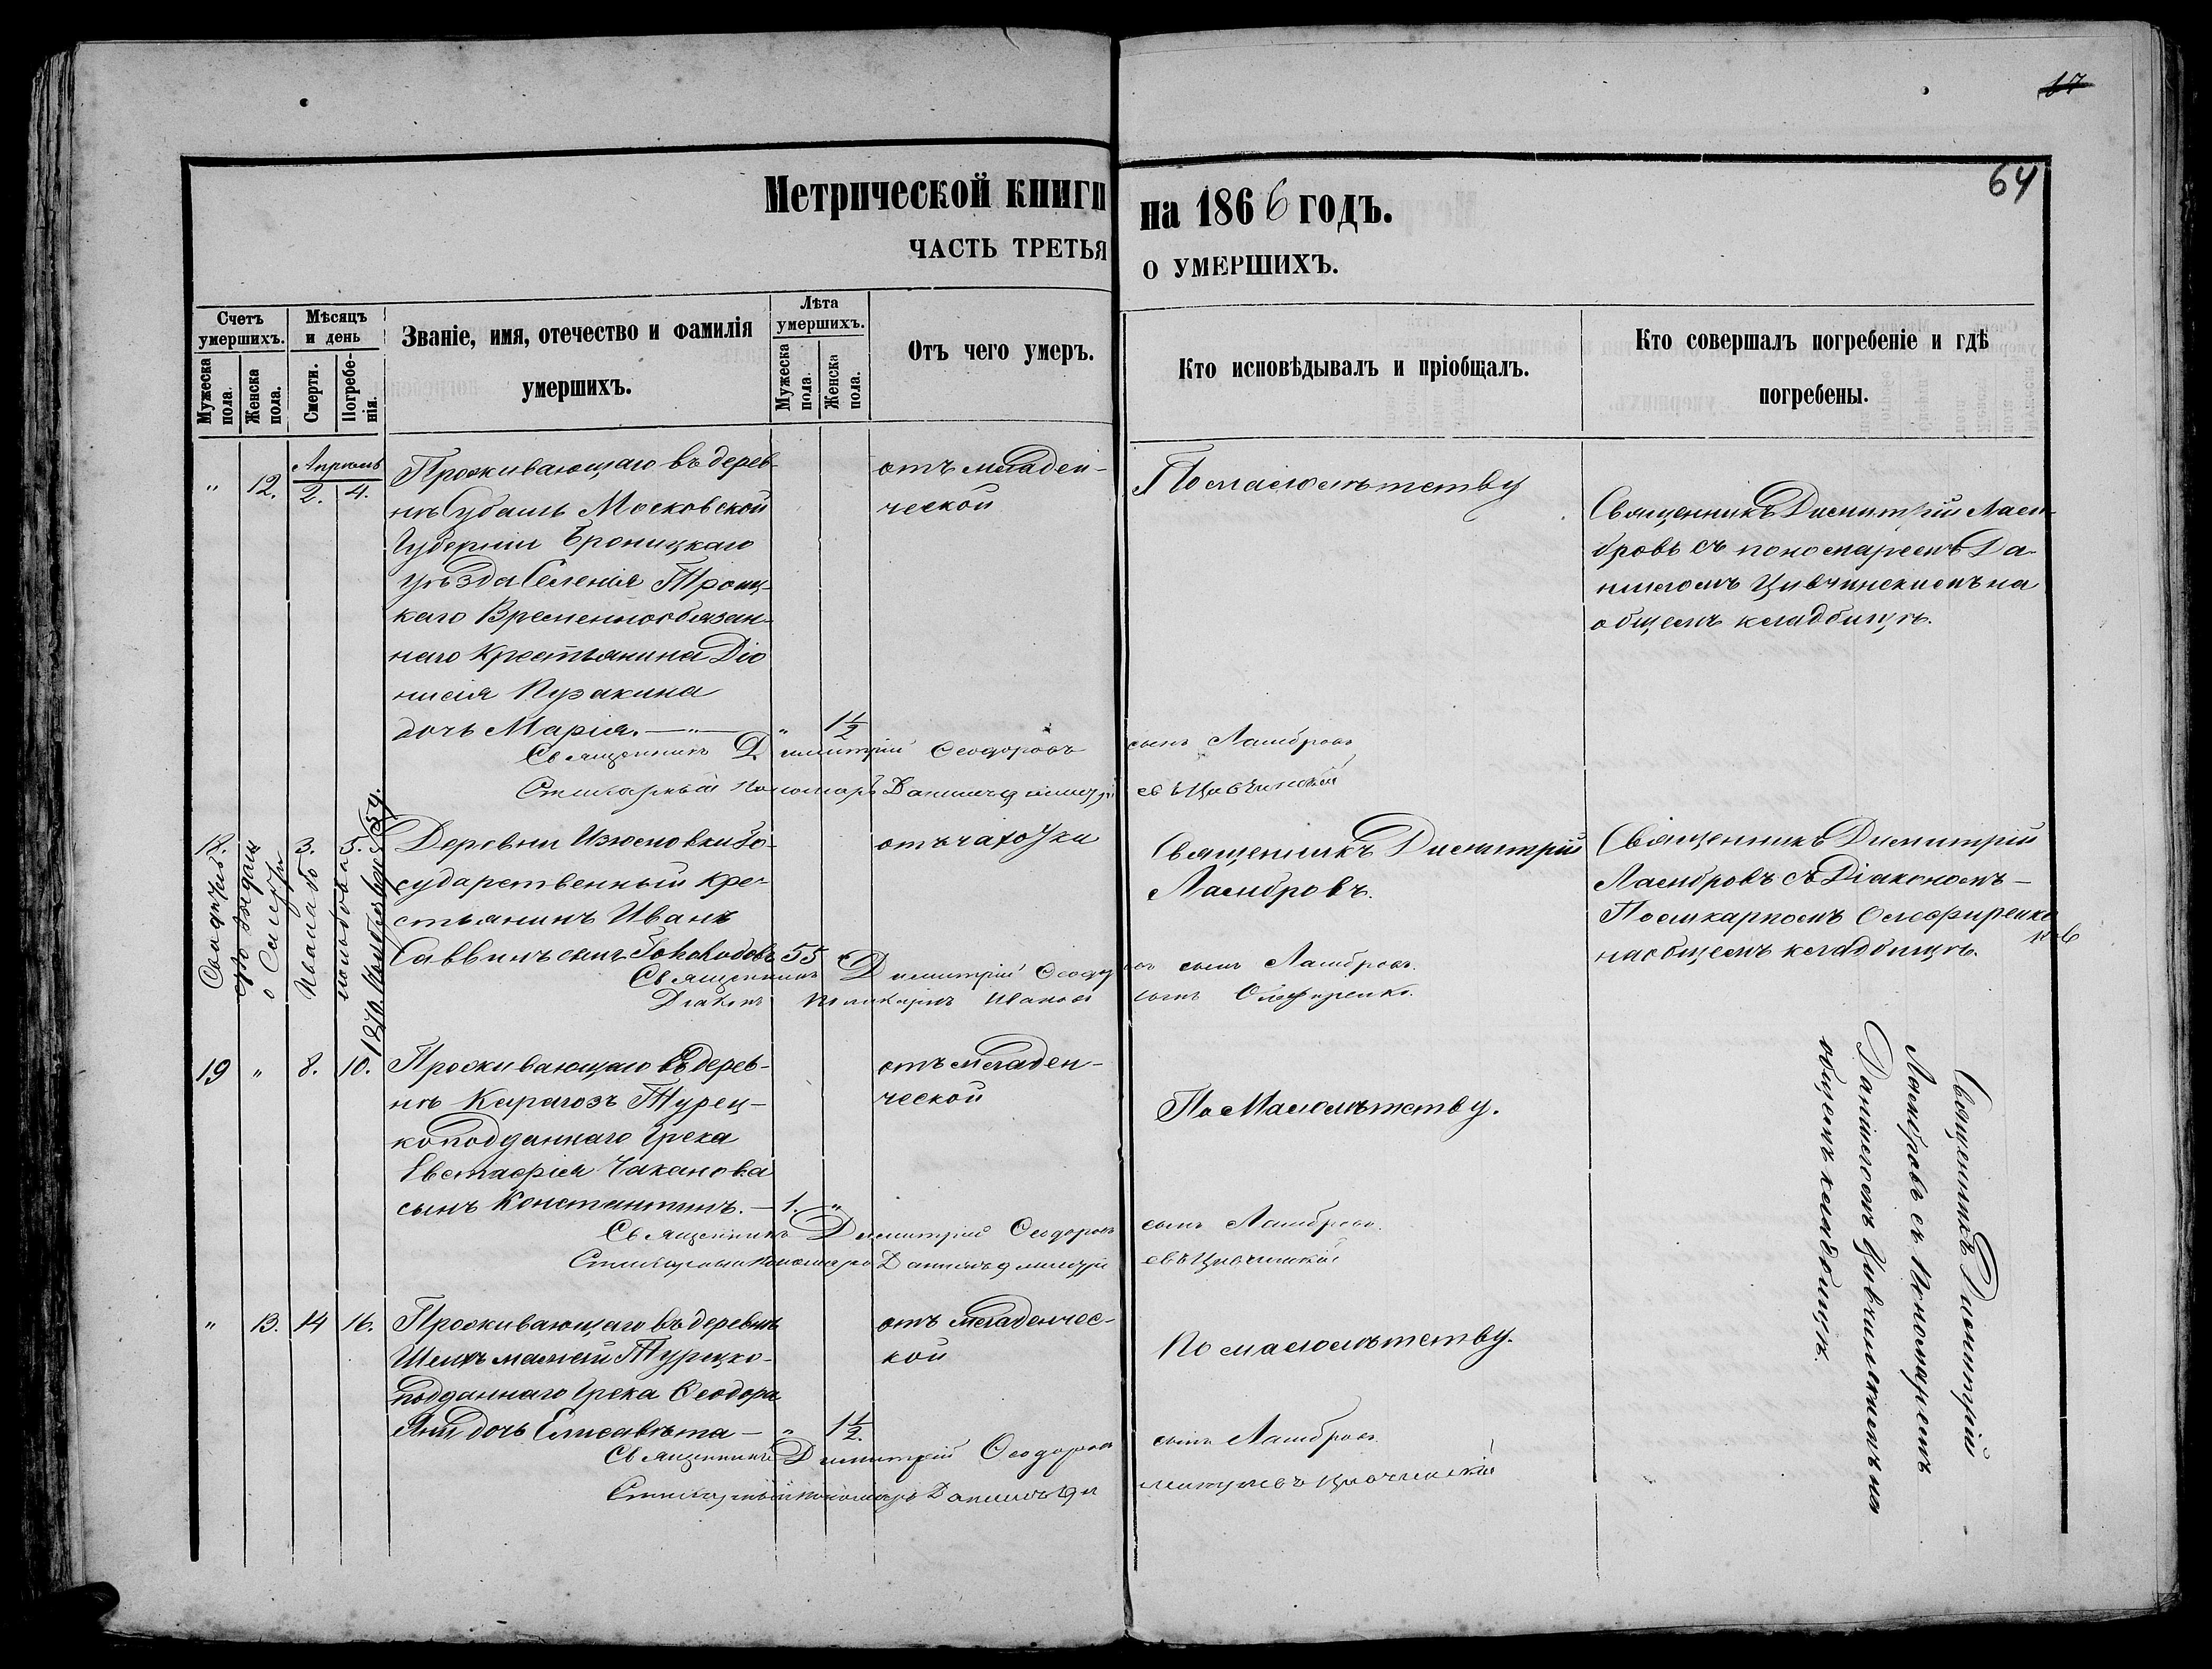 17
64
Метрической книги на 1866 годъ.
ЧАСТЬ ТРЕТЬЯ О УМЕРШИХЪ.
Счетъ умершихъ.
Мужеска пола.
Женска пола.
Мѣсяцъ и день
Смерти.
Погребенія.
Званіе, имя, отечество и фамилія
умершихъ.
Лѣта умершихъ.
Мужеска пола.
Женска пола.
Отъ чего умеръ.
Кто исповѣдывалъ и пріобщалъ.
Кто совершалъ погребеніе и гдѣ
погребены.
Апрѣль
" 12. 2. 4.
Проживающаго въ дерев-
нѣ Субашъ Московской
Губерніи Броницкаго
уѣзда Селенія Троиц-
каго Временнообязан-
наго крестьянина Діо
нисія Пузакина
дочь Марія. — " — " 1 1/2
отъ младен-
ческой
По малолѣтству
Священникъ Димитрій Лам-
бровъ съ пономаремъ Да-
ниломъ Цивчинскимъ на
общемъ кладбищѣ.
Священникъ Димитрій Ѳеодоровъ сынъ Ламбровъ
Стихарный Пономарь Даниилъ Дмитріевъ Цивчинскій
18. 3. 5.
Деревни Изюмовки Го-
сударственный кре-
стьянинъ Иванъ
Саввинъ сынъ 55 "
отъ чахотки
Священникъ Димитрій
Ламбровъ.
Священникъ Димитрій
Ламбровъ съ Діакономъ
Поликарпомъ Олефиренко
на общемъ кладбищѣ.
Священникъ Димитрій Ѳеодоровъ сынъ Ламбровъ.
Діаконъ Поликарпъ Ивановъ сынъ Олефиренко.
о Смерти
Ивана
1870
19 " 8. 10.
Проживающаго въ дерев-
нѣ Карагозъ Турец-
коподданнаго Грека
Евстафія Чаканова
сынъ Константинъ. — 1. "
отъ младен-
ческой
По Малолѣтству.
Священникъ Димитрій Ѳеодоровъ сынъ Ламбровъ.
Стихарный Пономарь Даниилъ Дмитріевъ Цивчинскій
Священникъ Димитрій
Ламбровъ съ Пономаремъ
Даниломъ Цивчинскимъ на
общемъ кладбищѣ.
" 13. 14 16.
Проживающаго въ деревнѣ
Шейхъ мамай Турецко-
подданнаго Грека Ѳеодора
Яни дочь Елисавѣта — " 1 1/2.
отъ младенчес-
кой
По малолѣтству.
Священникъ Димитрій Ѳеодоровъ сынъ Ламбровъ
Стихарный Пономарь Даниилъ Дмитріевъ Цивчинскій